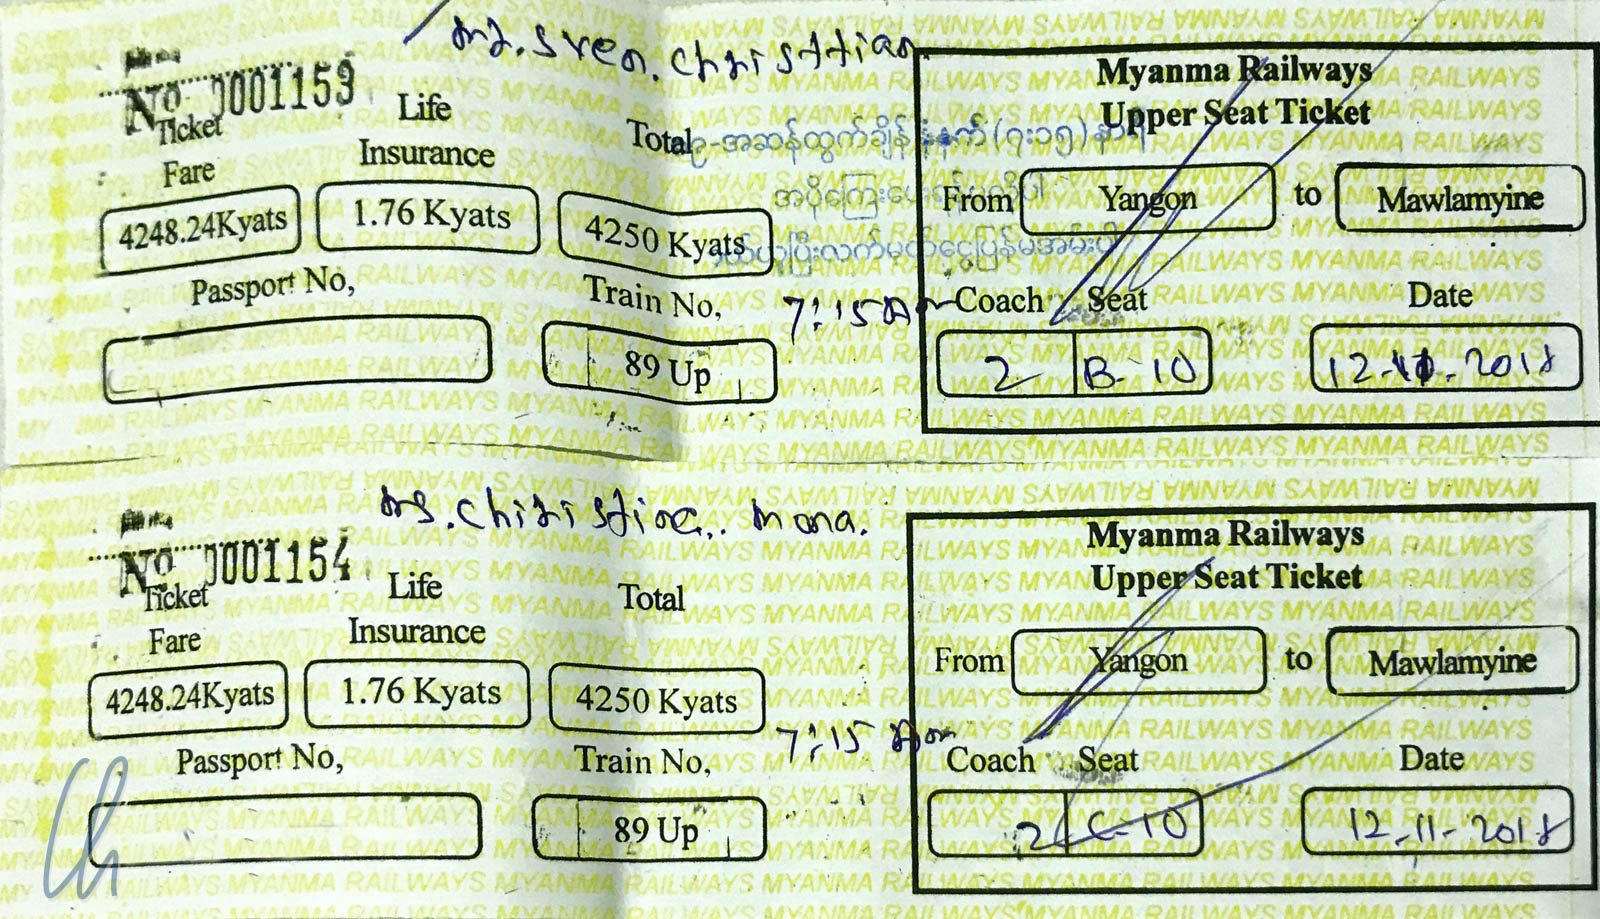 Mr. Sven. Christtian.
No 0001153
Ticket Fare
Life Insurance
Total
4248.24Kyats
1.76 Kyats
4250 Kyats
Passport No,
Train No,
89 Up
7:15 Am
Myanma Railways
Upper Seat Ticket
From Yangon to Mawlamyine
Coach Seat Date
2 B-10 12-11-2018
Ms. Christine.. Mona.
No 0001154
Ticket Fare
Life Insurance
Total
4248.24Kyats
1.76 Kyats
4250 Kyats
Passport No,
Train No,
89 Up
7:15 Am
Myanma Railways
Upper Seat Ticket
From Yangon to Mawlamyine
Coach Seat Date
2 C-10 12-11-2018
MYANMA RAILWAYS